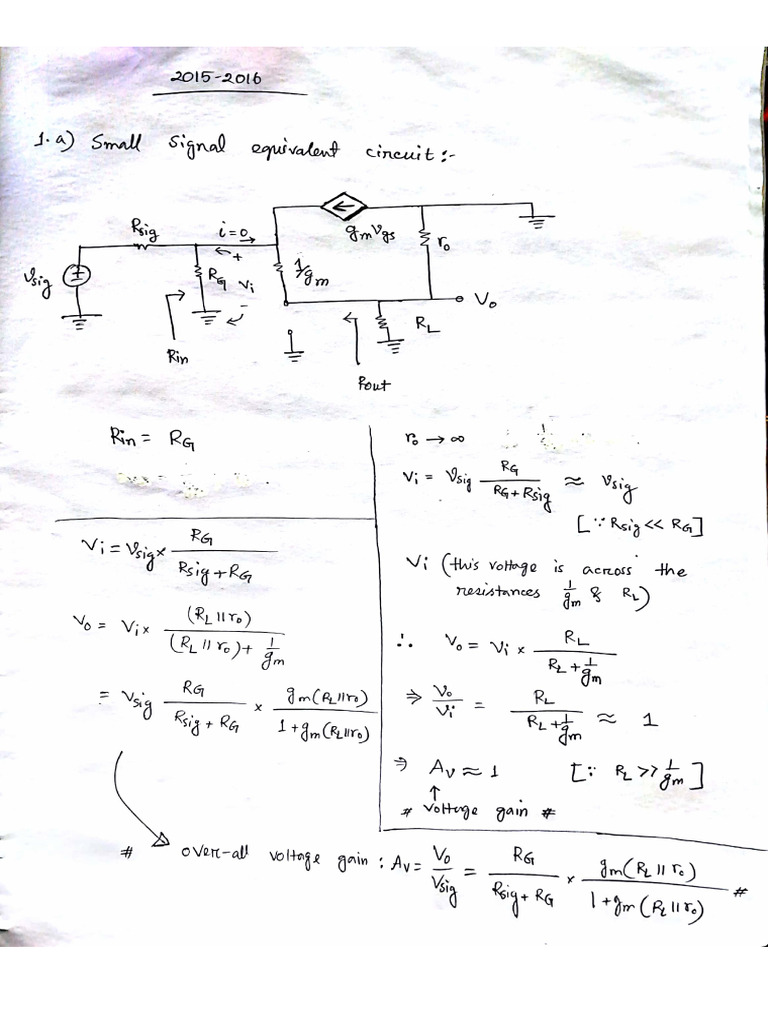 2015-2016
1.a) Small signal equivalent circuit :-
Rsig
i=0
gmVgs
r₀
Vsig
+
RG
Vi
-
1/gm
V₀
RL
Rin
Rout
Rin = RG
Vi = Vsig × RG / (Rsig + RG)
V₀ = Vi × (RL || r₀) / ((RL || r₀) + 1/gm)
= Vsig RG / (Rsig + RG) × gm(RL || r₀) / (1 + gm(RL || r₀))
r₀ → ∞
Vi = Vsig RG / (RG + Rsig) ≈ Vsig
[∵ Rsig << RG]
Vi (this voltage is across the
resistances 1/gm & RL)
∴ V₀ = Vi × RL / (RL + 1/gm)
⇒ V₀/Vi = RL / (RL + 1/gm) ≈ 1
⇒ AV ≈ 1 [∵ RL >> 1/gm]
↑
# voltage gain #
# over-all voltage gain : AV = V₀/Vsig = RG / (Rsig + RG) × gm(RL || r₀) / (1 + gm(RL || r₀)) #